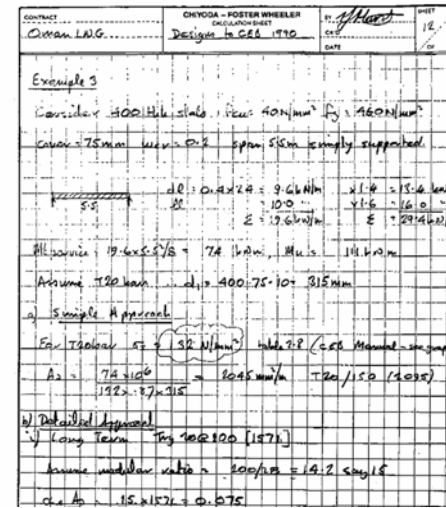 CONTRACT
Oman LNG
CHIYODA - FOSTER WHEELER
CALCULATION SHEET
Designs to CEB 1990
BY
CK'D
DATE
SHEET
12
OF
Example 3
Consider 400 thk slab, fcu = 40N/mm² fy = 460N/mm²
cover = 75mm wcr = 0.2 span 5.5m simply supported.
5.5
dl = 0.4x24 = 9.6 kN/m x1.4 = 13.4 kN/
ll 10.0 " x1.6 = 16.0 "
Σ = 19.6 kN/m Σ = 29.4 kN/
Mservice = 19.6x5.5²/8 = 74 kNm, Mu = 111 kNm
Assume T20 bar ∴ d1 = 400-75-10 = 315mm
a) Simple Approach
For T20 bar σs = 132 N/mm² table 7.8 (CEB Manual - see grap
As = 74 x 10⁶ = 2045 mm²/m T20/150 (2095)
132 x .87 x 315
b) Detailed Approach
i) Long Term Try 20@200 [1571]
Assume modular ratio = 200/28 = 14.2 say 15
As = 15 x 1571 = 0.075